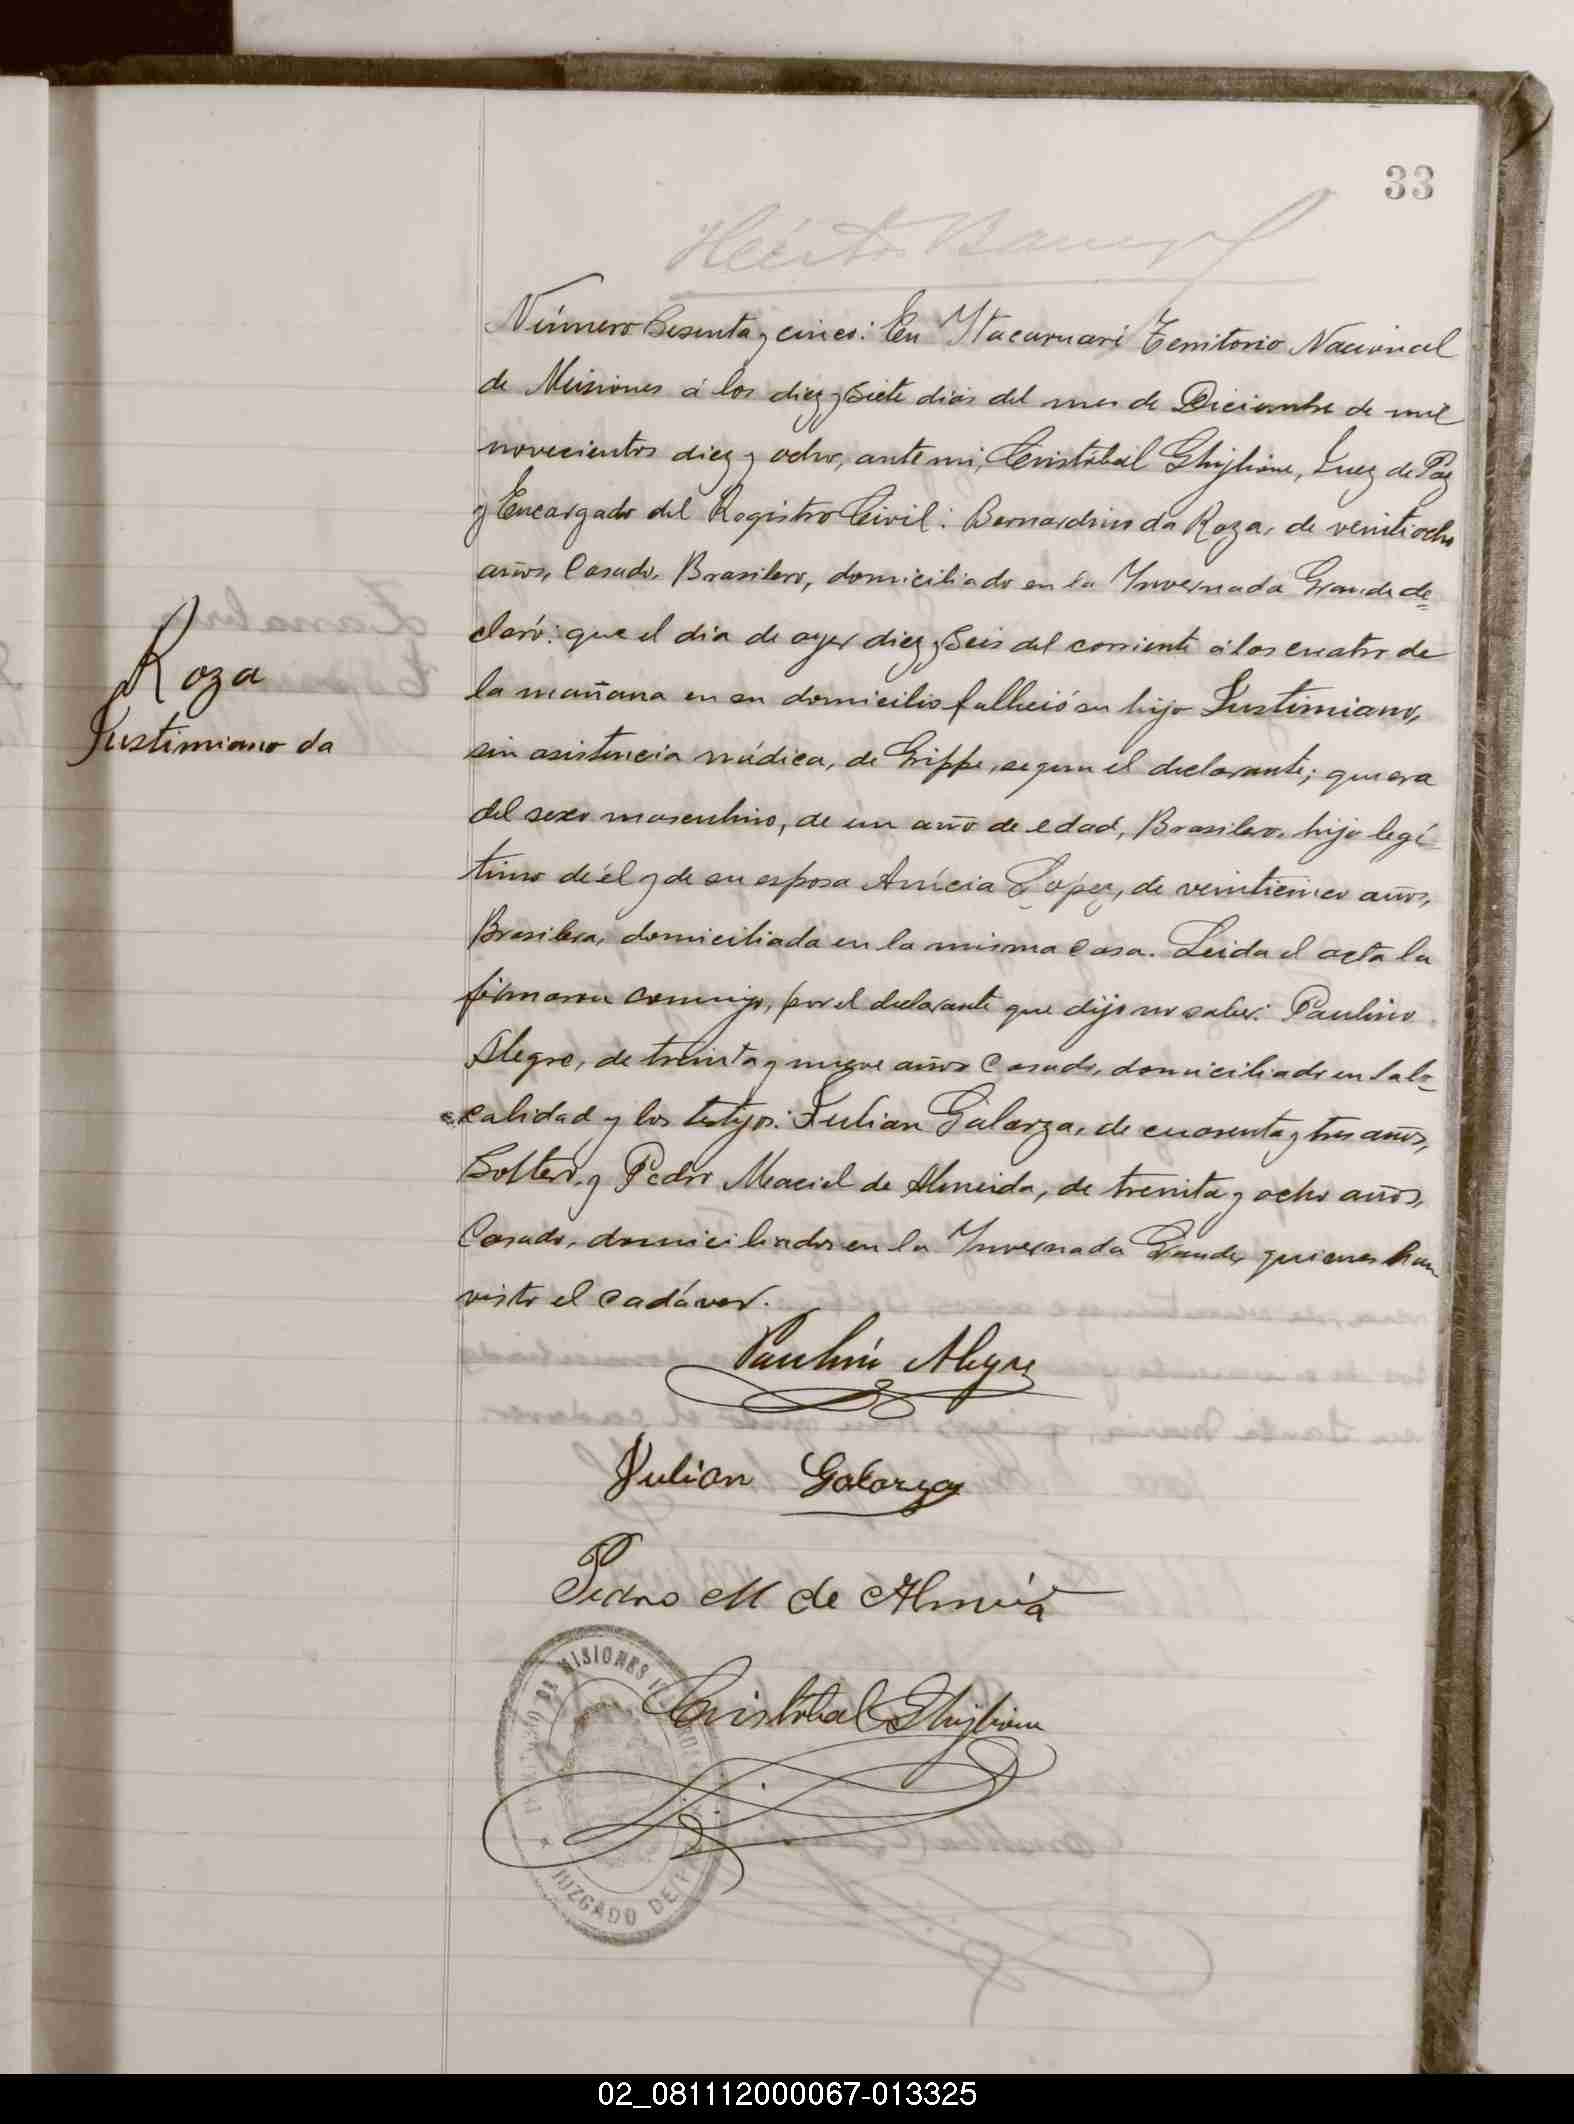 33
Número Sesenta y cinco: En Ytacaruaré Territorio Nacional
de Misiones á los diez y siete dias del mes de Diciembre de mil
novecientos diez y ocho, ante mi, Cristóbal Ghiglione, Juez de Paz
y Encargado del Registro Civil: Bernardino da Roza, de veintiocho
años, Casado, Brasilero, domiciliado en la Invernada Grande de=
claró: que el dia de ayer diez y seis del corriente á las cuatro de
la mañana en su domicilio falleció su hijo Justimiano,
sin asistencia médica, de Grippe, segun el declarante; que era
del sexo masculino, de un año de edad, Brasilero, hijo legí
timo de él y de su esposa Anícia López, de veinticinco años,
Brasilera, domiciliada en la misma casa. Leida el acta la
firmaron conmigo, por el declarante que dijo no saber: Paulino
Alegre, de treinta y nueve años Casado, domiciliado en la lo=
calidad y los testigos: Julian Galarza, de cuarenta y tres años,
Soltero, y Pedro Maciel de Almeida, de treinta y ocho años,
Casado, domiciliados en la Invernada Grande, quienes han
visto el cadáver.
Roza
Justimiano da
Paulino Alegre
Julian Galarza
Pedro M de Almeida
Cristóbal Ghiglione
DE MISIONES
JUZGADO DE
02_081112000067-013325